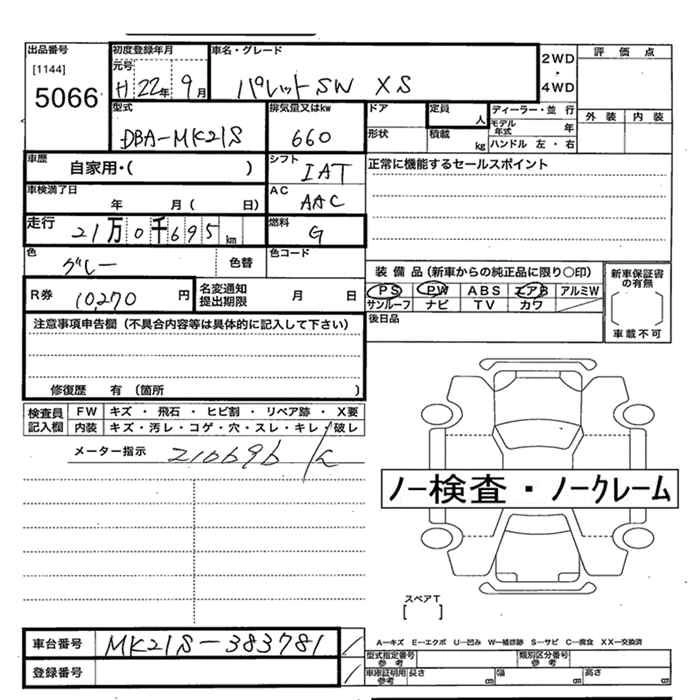 出品番号 初度登録年月 車名・グレード 2WD ・ 4WD 評価点
[1144] 元号
5066 H 22年 9月 パレットSW XS
型式 排気量又はkw ドア 定員 人 ディーラー・並行 外装 内装
DBA-MK21S 660 形状 積載 kg モデル年式 年
ハンドル 左・右
車歴 自家用・( ) シフト IAT 正常に機能するセールスポイント
車検満了日 年 月( 日) AC AAC
走行 21万0千695km 燃料 G
色 グレー 色替 色コード
装備品(新車からの純正品に限り○印) 新車保証書の有無
R券 10,270 円 名変通知提出期限 月 日 PS PW ABS エアB アルミW
サンルーフ ナビ TV カワ
〔 〕
車載不可
注意事項申告欄(不具合内容等は具体的に記入して下さい) 後日品
修復歴 有(箇所 )
検査員記入欄 FW キズ・飛石・ヒビ割・リペア跡・X要
内装 キズ・汚レ・コゲ・穴・スレ・キレ・破レ
メーター指示 210696
ノー検査・ノークレーム
スペアT
[ ]
車台番号 MK21S-383781 A-キズ E-エクボ U-凹み W-補修跡 S-サビ C-腐食 XX-交換済
型式指定番号 参考 類別区分番号 参考
登録番号 車庫証明用 参考 長さ cm 幅 cm 高さ cm